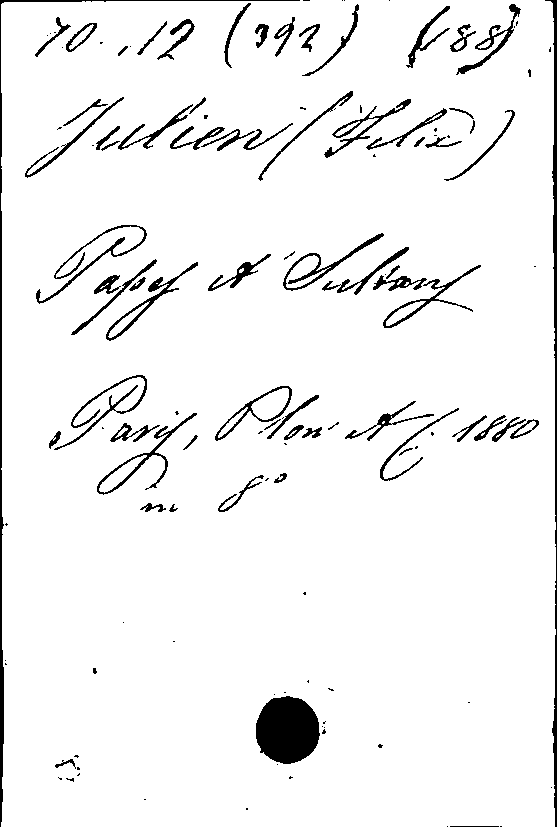 70.,12 (392) (188)
Julien (Félix)
Papes et Sultans
Paris, Plon et C. 1880
in 8°